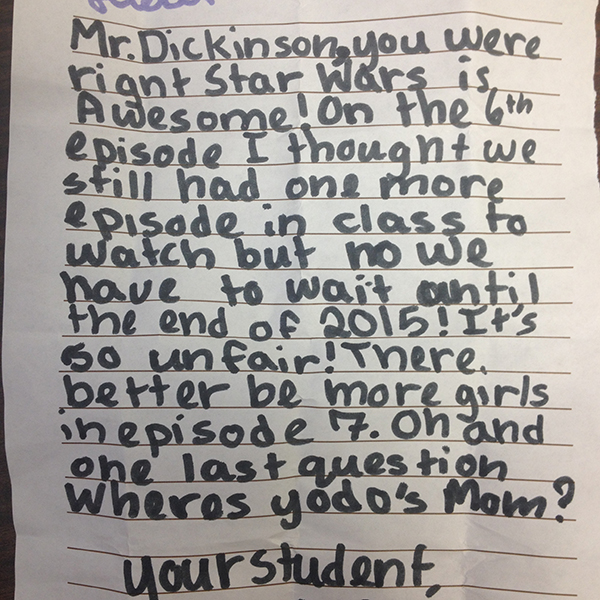 Mr. Dickinson, you were
right Star Wars is
Awesome! On the 6th
episode I thought we
still had one more
episode in class to
watch but no we
have to wait antil
the end of 2015! It's
so unfair! There
better be more girls
in episode 7. Oh and
one last question
Wheres yodo's Mom?
your student,